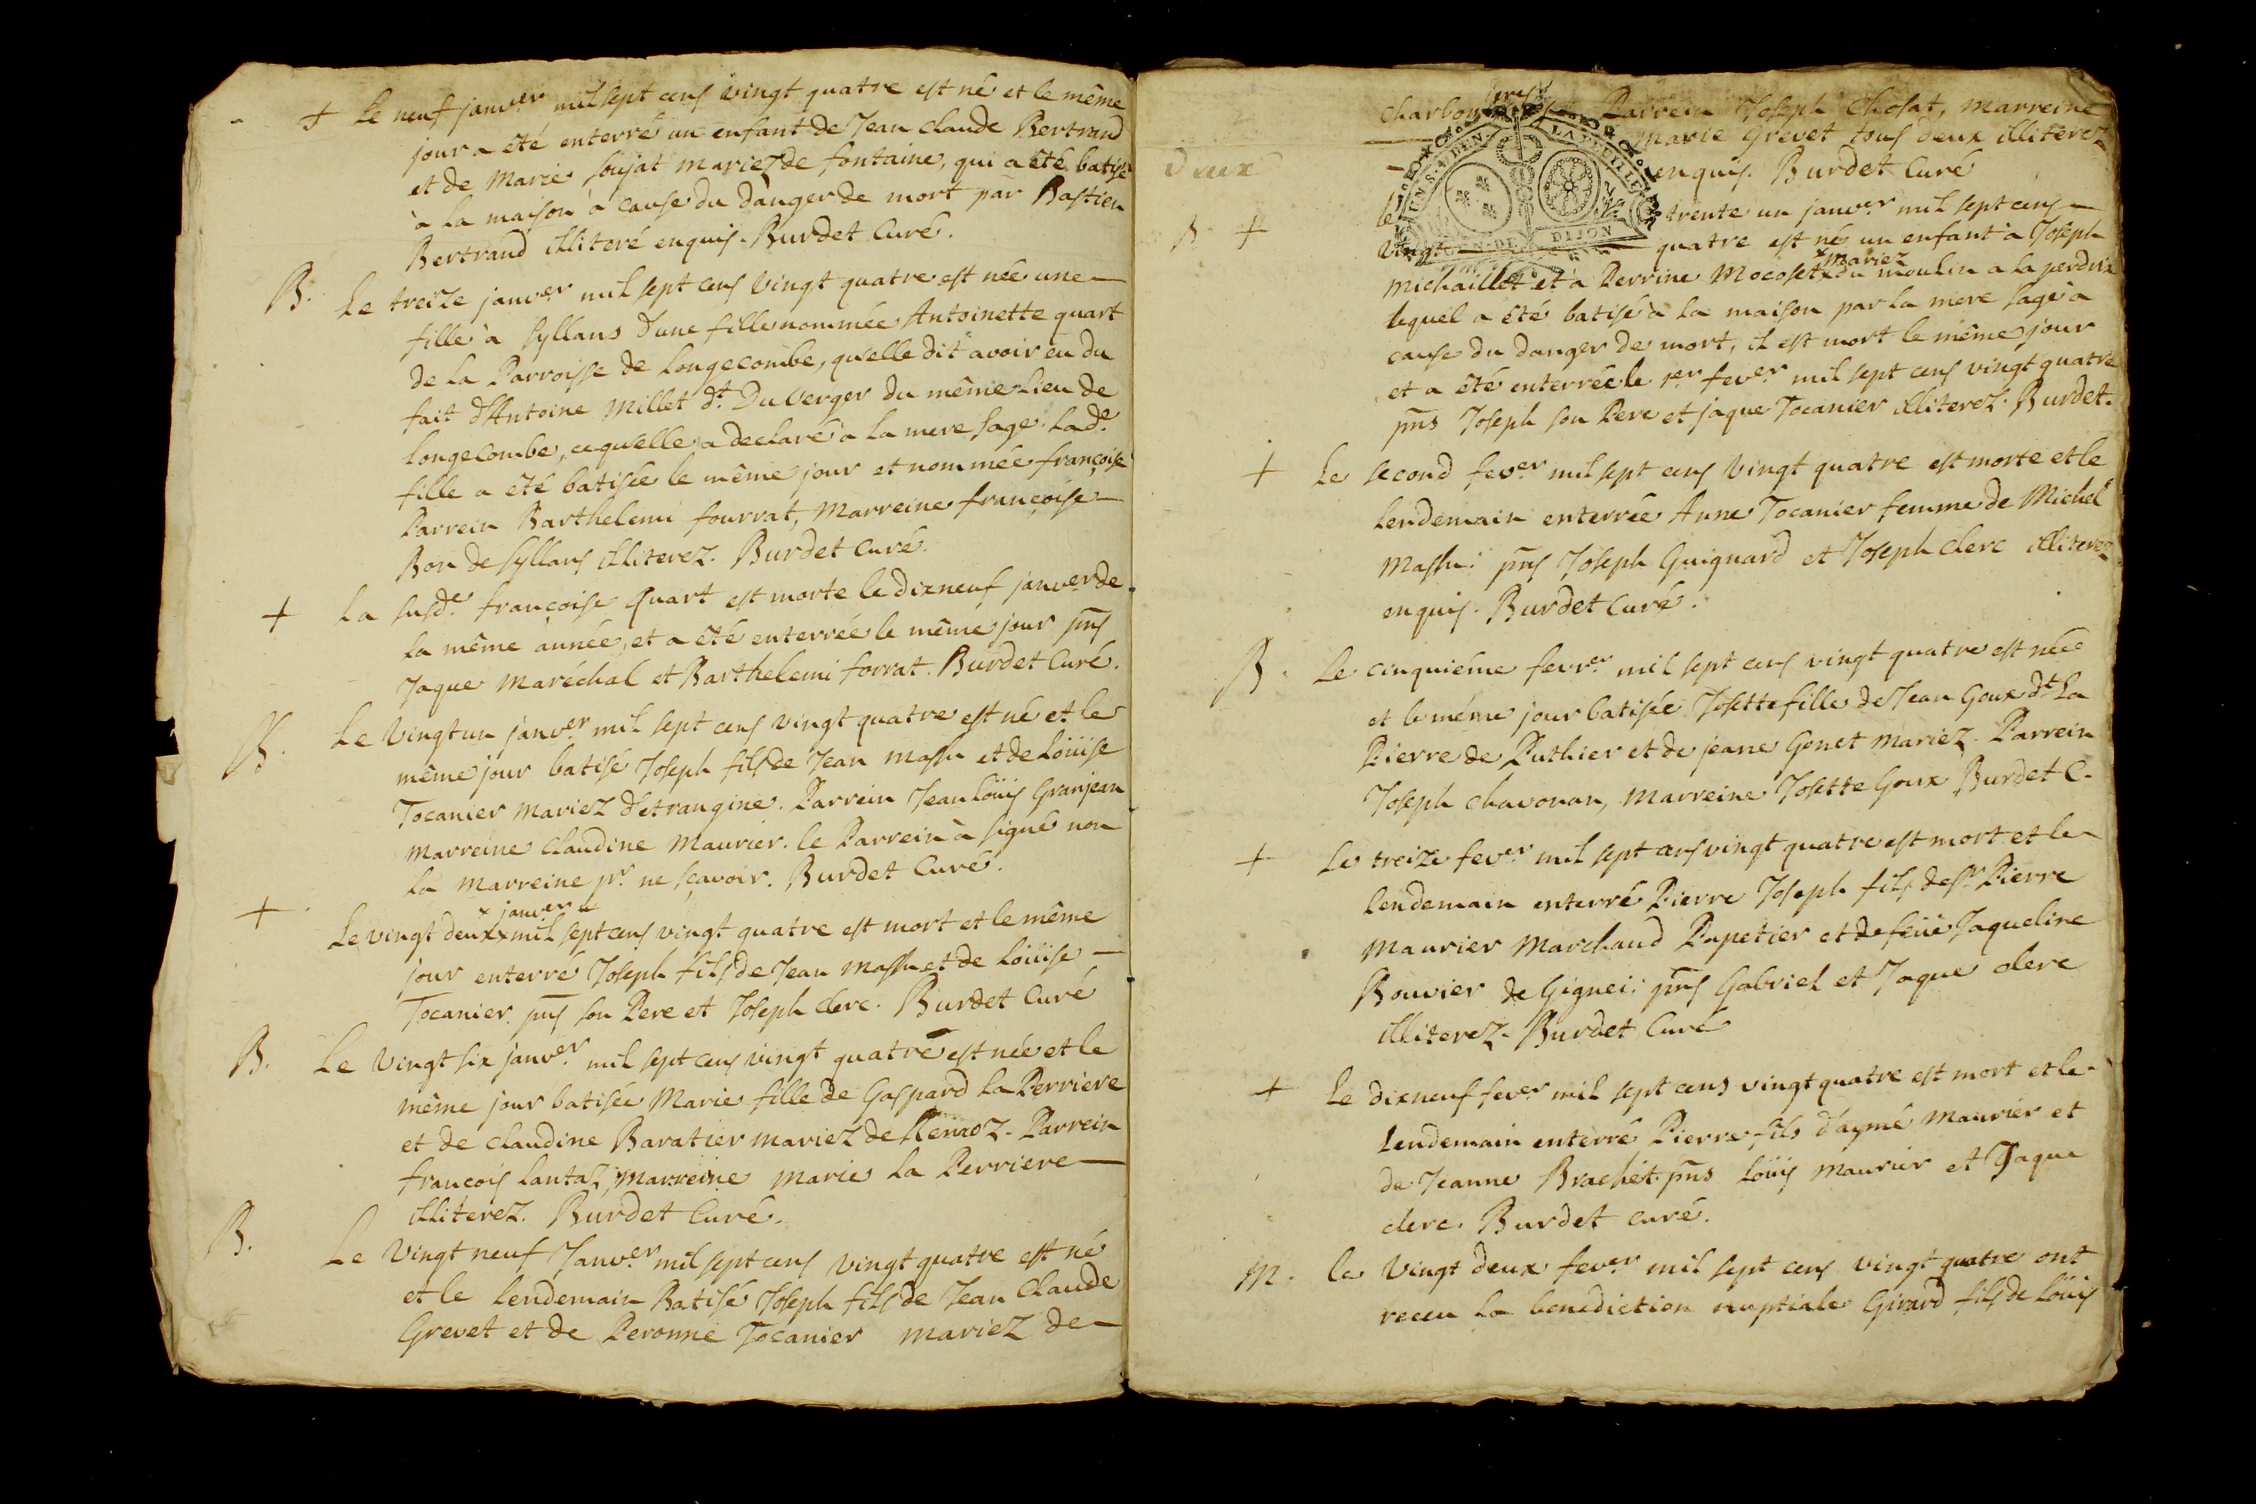 + Le neuf janver mil sept cens vingt quatre est né et le même
jour a été enterré un enfant de Jean Claude Bertrand
et de Marie soujat mariez de fontaine, qui a été batisé
à la maison à cause du danger de mort par Bastien
Bertrand illiteré enquis. Burdet Curé.
B. Le treize janver mil sept cens vingt quatre est née une
fille à Syllans d'une fille nommée Antoinette quart
de la Parroisse de Longecombe, qu'elle dit avoir eu du
fait d'Antoine Millet dt. Du Verger du même Lieu de
Longecombe, ce qu'elle a declaré à la mere sage. Lade.
fille a été batisée le même jour et nommée françoise
Parrein Barthelemi fourrat, Marreine françoise
Bon de Syllans illiterez. Burdet Curé.
+ La susde. françoise Quart est morte le dixneuf janver de
la même année, et a été enterrée le même jour pns
Jaque Maréchal et Barthelemi forrat. Burdet Curé.
B. Le Vingt un janver mil sept cens vingt quatre est né et le
même jour batisé Joseph fils de Jean Massu et de Loüise
Tocanier Mariez d'étrangine. Parrein Jean Loüis Granjean
Marreine Claudine Maurier. le Parrein à signé non
la Marreine pr. ne sçavoir. Burdet Curé.
x janver
+ Le vingt deux x mil sept cens vingt quatre est mort et le même
jour enterré Joseph fils de Jean Massu et de Loüise
Tocanier. pns son Pere et Joseph clerc. Burdet Curé
B. Le Vingt six janver mil sept cens vingt quatre est née et le
même jour batisée Marie fille de Gaspard La Perriere
et de Claudine Baratier mariez de Renaoz. Parrein
francois Lantaz, Marreine Marie La Perriere
illiterez. Burdet Curé.
B. Le Vingt neuf Janver mil sept cens vingt quatre est né
et le lendemain Batisé Joseph fils de Jean Claude
Grevet et de Peronne Tocanier mariez de
Charbon Parrein Joseph Chosat, Marreine
Marie Grevet tous deux illiterez
enquis. Burdet Curé
Deux
GEN. DE DIJON
B + le trente un janver mil sept cens
vingt quatre est né un enfant à Joseph
x mariez
Michaillet et à Perrine Mocoset x du moulin a la perdrix
lequel a été batisé à la maison par la mere sage à
cause du danger de mort, il est mort le même jour
et a été enterrée le 1er fever mil sept cens vingt quatre
pns Joseph son Pere et jaque Tocanier illiterez. Burdet.
+ Le second fever mil sept cens vingt quatre est morte et le
lendemain enterrée Anne Tocanier femme de Michel
Massu: pns Joseph Guignard et Joseph clerc illiterez
enquis. Burdet Curé.
B. Le cinquième fevrer mil sept cens vingt quatre est née
et le même jour batisée Josette fille de Jean Goux dt. La
Pierre de Puthier et de jeane Gonet mariez. Parrein
Joseph Chavonan, Marreine Josette Goux Burdet C.
+ Le treize fever mil sept cens vingt quatre est mort et le
lendemain enterré Pierre Joseph fils de sr. Pierre
Maurier Marchand Papetier et de feüe Jaqueline
Bouvier de Gignei: pns Gabriel et Jaque clerc
illiterez. Burdet Curé
+ Le dixneuf fever mil sept cens vingt quatre est mort et le
lendemain enterré Pierre fils d'aymé Maurier et
de Jeanne Brachet. pns Loüis Maurier et Jaque
clerc. Burdet curé.
M. le Vingt deux fever mil sept cens vingt quatre ont
receu la benediction nuptiale Girard fils de Loüis